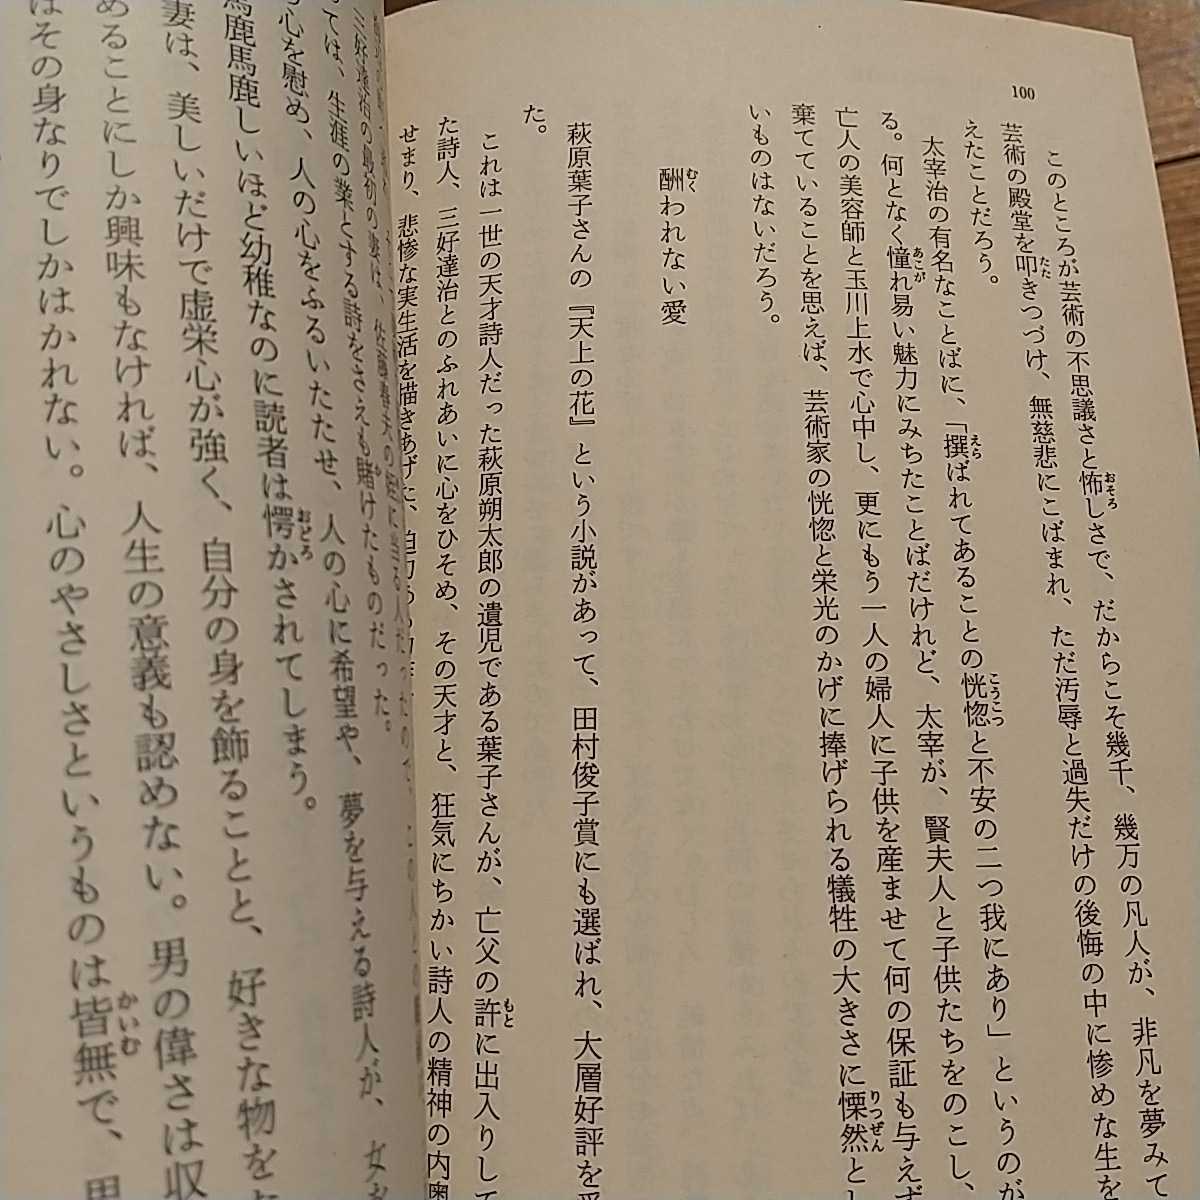 100
このところが芸術の不思議さと怖しさで、だからこそ幾千、幾万の凡人が、非凡を夢みて
芸術の殿堂を叩きつづけ、無慈悲にこばまれ、ただ汚辱と過失だけの後悔の中に惨めな生を
えたことだろう。
太宰治の有名なことばに、「撰ばれてあることの恍惚と不安の二つ我にあり」というのが
る。何となく憧れ易い魅力にみちたことばだけれど、太宰が、賢夫人と子供たちをのこし、
亡人の美容師と玉川上水で心中し、更にもう一人の婦人に子供を産ませて何の保証も与えず
棄てていることを思えば、芸術家の恍惚と栄光のかげに捧げられる犠牲の大きさに慄然とし
いものはないだろう。
酬われない愛
萩原葉子さんの『天上の花』という小説があって、田村俊子賞にも選ばれ、大層好評を受
た。
これは一世の天才詩人だった萩原朔太郎の遺児である葉子さんが、亡父の許に出入りして
た詩人、三好達治とのふれあいに心をひそめ、その天才と、狂気にちかい詩人の精神の内奥
せまり、悲惨な実生活を描きあげた、
三好達治の最初の妻は、佐藤春夫の姪に当る人だったので、
ては、生涯の業とする詩をさえも賭けたものだった。
心を慰め、人の心をふるいたたせ、人の心に希望や、夢を与える詩人が、女を
馬鹿馬鹿しいほど幼稚なのに読者は愕かされてしまう。
妻は、美しいだけで虚栄心が強く、自分の身を飾ることと、好きな物を
めることにしか興味もなければ、人生の意義も認めない。男の偉さは収
はその身なりでしかはかれない。心のやさしさというものは皆無で、男